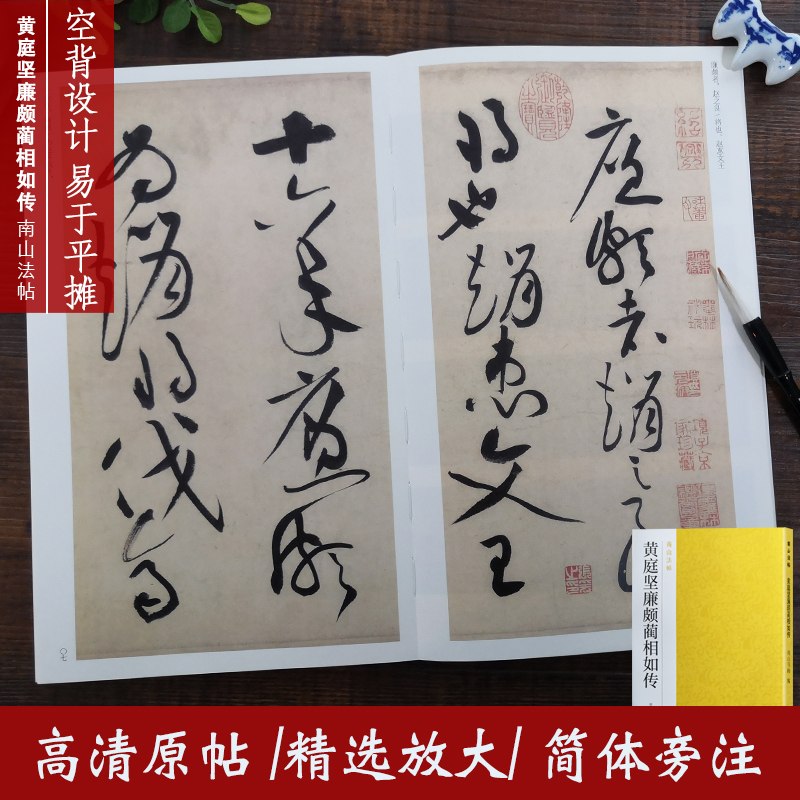 空背设计 易于平摊
黄庭坚廉颇蔺相如传 南山法帖
廉颇者，赵之良/将也，赵惠文王
廉頗者趙之良
將也趙惠文王
十六年廉頗
為趙將伐齊
項子京家珍藏
南山法帖
黄庭坚廉颇蔺相如传
高清原帖/精选放大/简体旁注